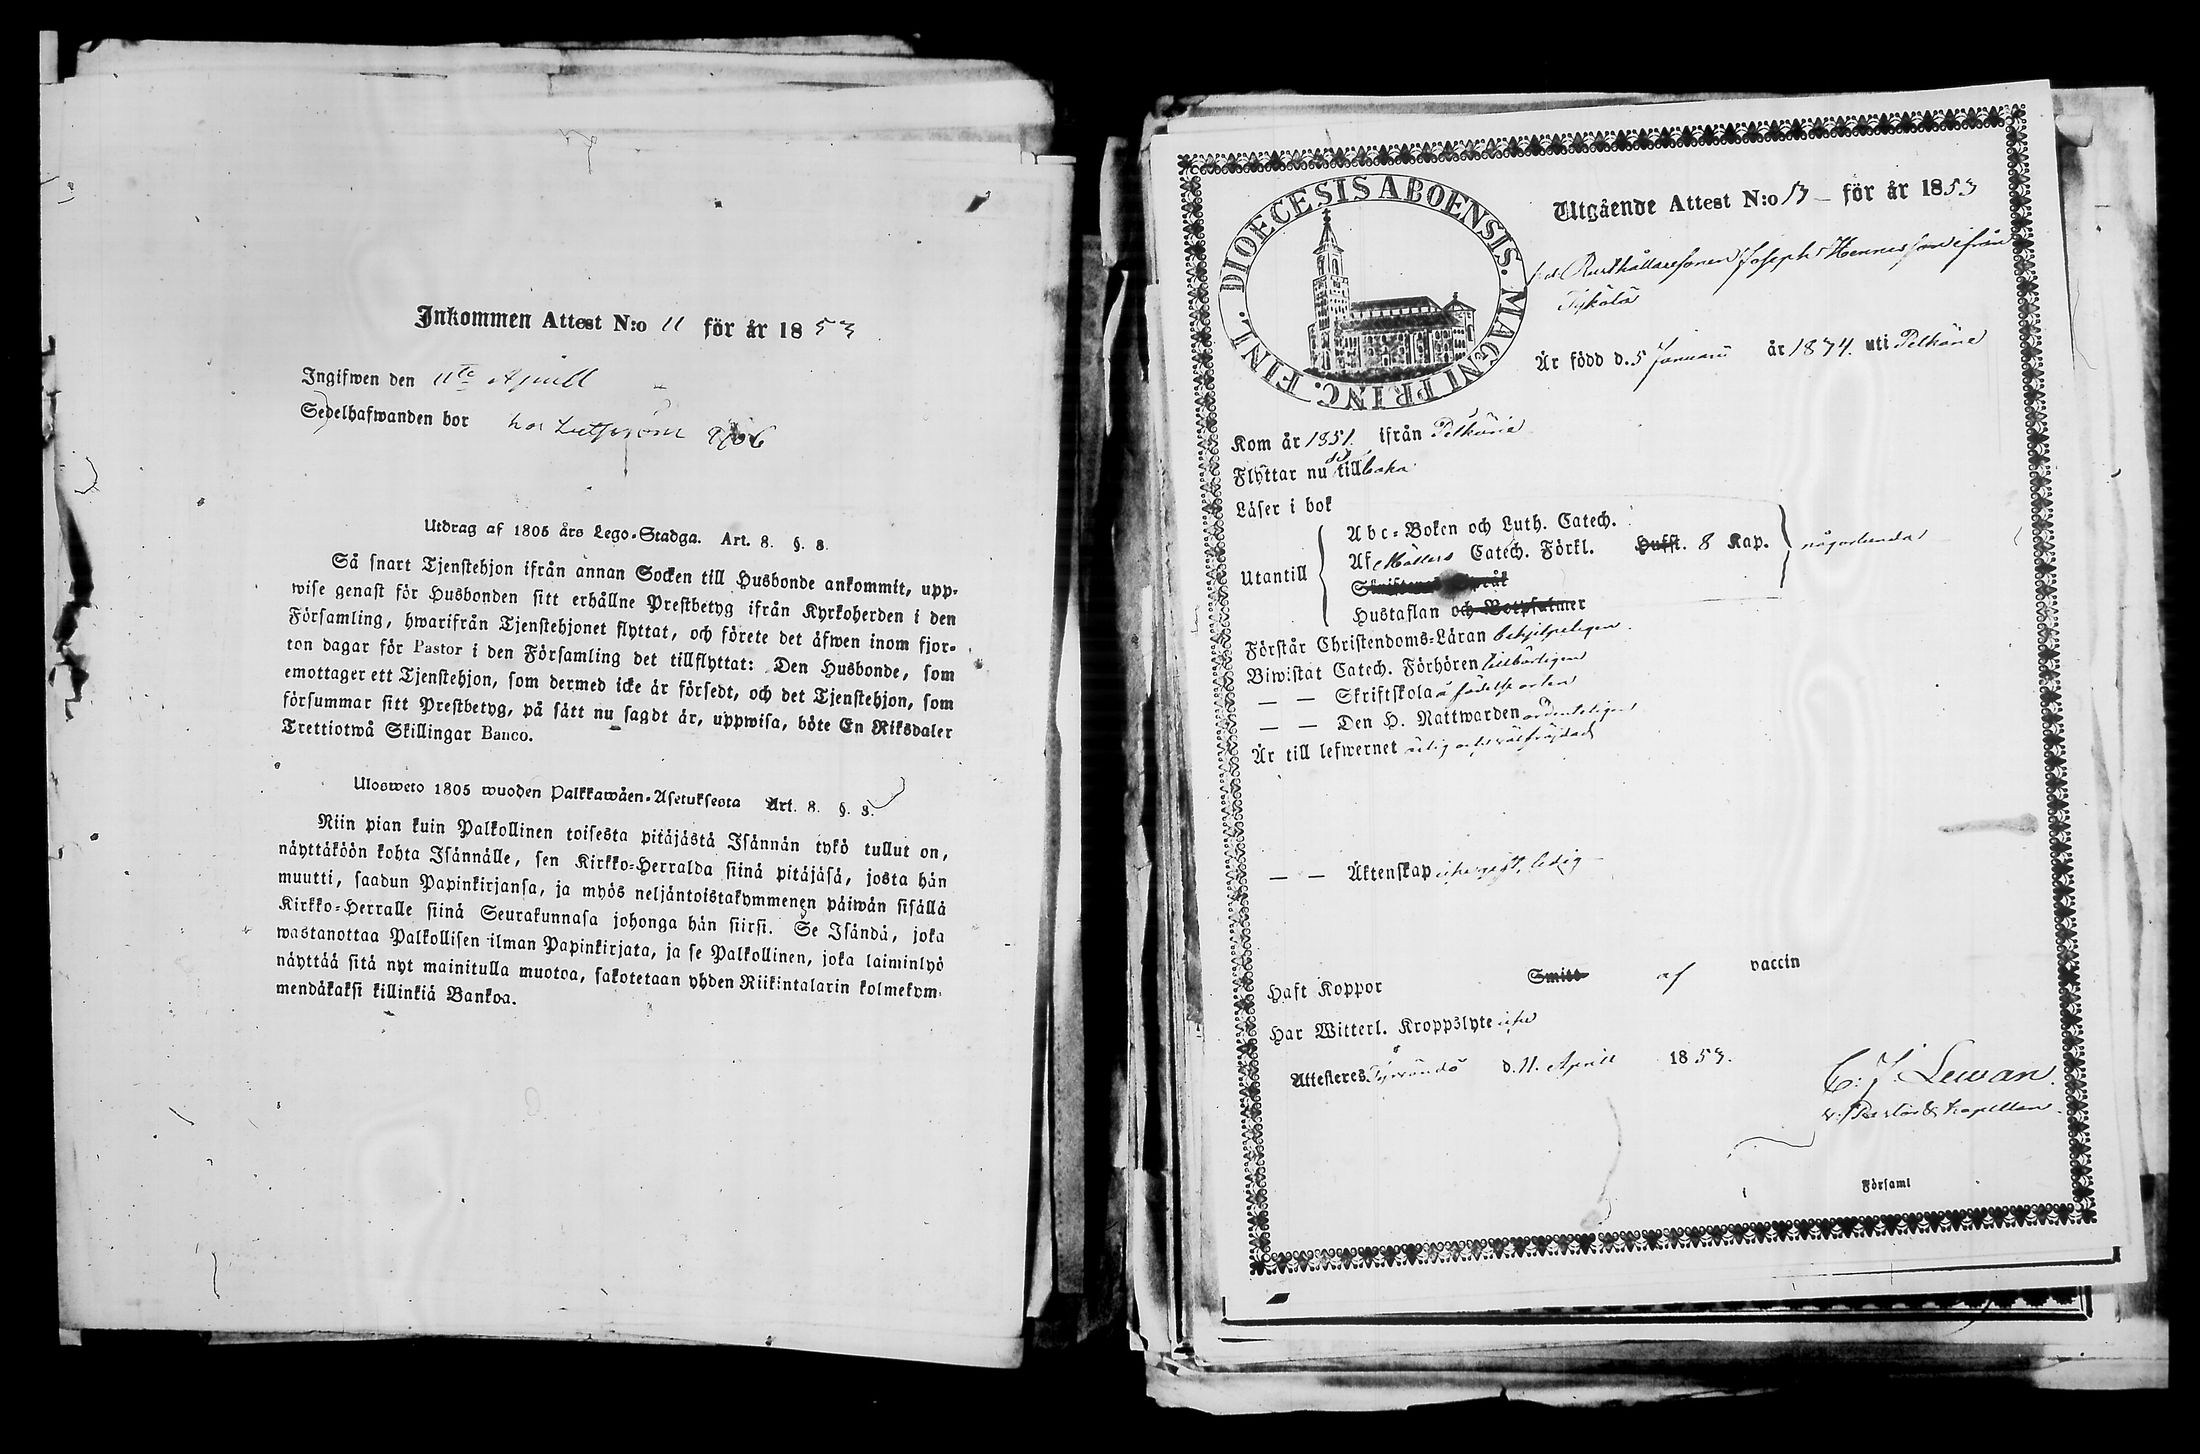 Inkommen Attest N:o 11 för år 1853
Ingifwen den 11te Aprill
Sedelhafwanden bor hos
Utdrag af 1805 års Lego-Stadga. Art. 8. §. 8.
Så snart Tjenstehjon ifrån annan Socken till Husbonde ankommit, upp-
wise genast för Husbonden sitt erhållne Prestbetyg ifrån Kyrkoherden i den
Församling, hwarifrån Tjenstehjonet flyttat, och förete det äfwen inom fjor-
ton dagar för Pastor i den Församling det tillflyttat: Den Husbonde, som
emottager ett Tjenstehjon, som dermed icke är försedt, och det Tjenstehjon, som
försummar sitt Prestbetyg, på sätt nu sagdt är, uppwisa, böte En Riksdaler
Trettiotwå Skillingar Banco.
Ulosweto 1805 wuoden Palkkawäen-Asetuksesta Art. 8. §. 8.
Niin pian kuin Palkollinen toisesta pitäjästä Isännän tykö tullut on,
näyttäköön kohta Isännälle, sen Kirkko-Herralda siinä pitäjäsä, josta hän
muutti, saadun Papinkirjansa, ja myös neljäntoistakymmenen päiwän sisällä
Kirkko-Herralle siinä Seurakunnasa johonga hän siirsi. Se Isändä, joka
wastanottaa Palkollisen ilman Papinkirjata, ja se Palkollinen, joka laiminlyö
näyttää sitä nyt mainitulla muotoa, sakotetaan yhden Riikintalarin kolmekym-
mendäkaksi killinkiä Bankoa.
DIOECESIS ABOENSIS. MAGNI PRINC. FINL.
Utgående Attest N:o 13 för år 1853
f.d. Rusthållaresonen Joseph Hennesson ifrån
Är född d. 5 Januarii år 1874. uti Pelkäne
Kom år 1851. ifrån Pelkäne
Flyttar nu dit tillbaka
Läser i bok
Utantill
Abc-Boken och Luth. Catech.
Af Möllers Catech. Förkl. Hufst. 8 Kap. någorlunda
Skriftenes Språk
Hustaflan och Botpsalmer
Förstår Christendoms-Läran behjelpeligen
Biwistat Catech. Förhören tillbörligen
— — Skriftskola å födelseorten
— — Den H. Nattwarden ordenteligen
Är till lefwernet ärlig och wälfräjdad
— — Äktenskap icke gift, ledig
Haft Koppor Smitt af vaccin
Har Witterl. Kroppslyte icke
Attesteres Tyrwändö d. 11. Aprill 1853.
C: J Lewan.
v: Pastor & Kapellan.
Församl